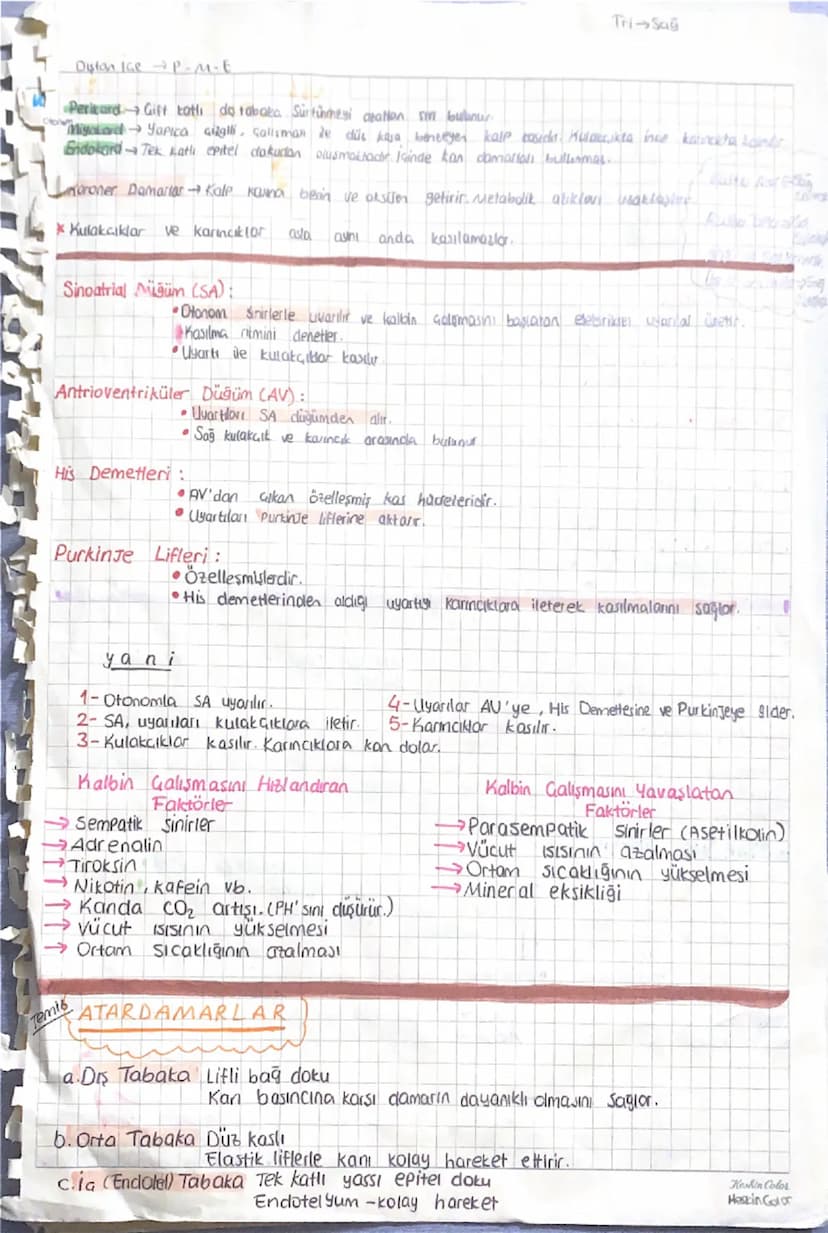 Tri→Sağ
Dıştan İçe → P-M-E
Perikard → Çift katlı dış tabaka Sürtünmeyi azaltan sıvı bulunur.
Miyokard → Yapıca çizgili, çalışması ile düz kasa benzeyen kalp kasıdır. Kulakçıkta ince karıncıkta kalındır.
Endokard → Tek katlı epitel dokudan oluşmaktadır. İçinde kan damarları bulunmaz.
Koroner Damarlar → Kalp kasına besin ve oksijen getirir. Metabolik atıkları uzaklaştırır
* Kulakçıklar ve karıncıklar asla aynı anda kasılamazlar.
Sinoatrial Düğüm (SA) :
• Otonom sinirlerle uyarılır ve kalbin çalışmasını başlatan elektriksel uyarılar üretir.
• Kasılma ritmini denetler.
• Uyartı ile kulakçıklar kasılır
Antrioventriküler Düğüm (AV) :
• Uyartıları SA düğümden alır.
• Sağ kulakçık ve karıncık arasında bulunur
His Demetleri :
• AV'dan çıkan özelleşmiş kas hücreleridir.
• Uyartıları Purkinje liflerine aktarır.
Purkinje Lifleri :
• Özelleşmişlerdir.
• His demetlerinden aldığı uyartıyı karıncıklara ileterek kasılmalarını sağlar.
yani
1- Otonomla SA uyarılır.
2- SA, uyarıları kulakçıklara iletir.
3- Kulakçıklar kasılır. Karıncıklara kan dolar.
4- Uyarılar AV'ye, His Demetlerine ve Purkinjeye gider.
5- Karıncıklar kasılır.
Kalbin Çalışmasını Hızlandıran
Faktörler
→ Sempatik sinirler
→ Adrenalin
→ Tiroksin
→ Nikotin, kafein vb.
→ Kanda CO₂ artışı. (PH'sını düşürür.)
→ Vücut ısısının yükselmesi
→ Ortam sıcaklığının azalması
Kalbin Çalışmasını Yavaşlatan
Faktörler
→ Parasempatik sinirler (Asetilkolin)
→ Vücut ısısının azalması
→ Ortam sıcaklığının yükselmesi
→ Mineral eksikliği
Temiz
ATARDAMARLAR
a. Dış Tabaka Lifli bağ doku
Kan basıncına karşı damarın dayanıklı olmasını sağlar.
b. Orta Tabaka Düz kaslı
Elastik liflerle kanı kolay hareket ettirir.
c. İç (Endotel) Tabaka Tek katlı yassı epitel doku
Endotelyum - kolay hareket
Keskin Color
Keskin Color